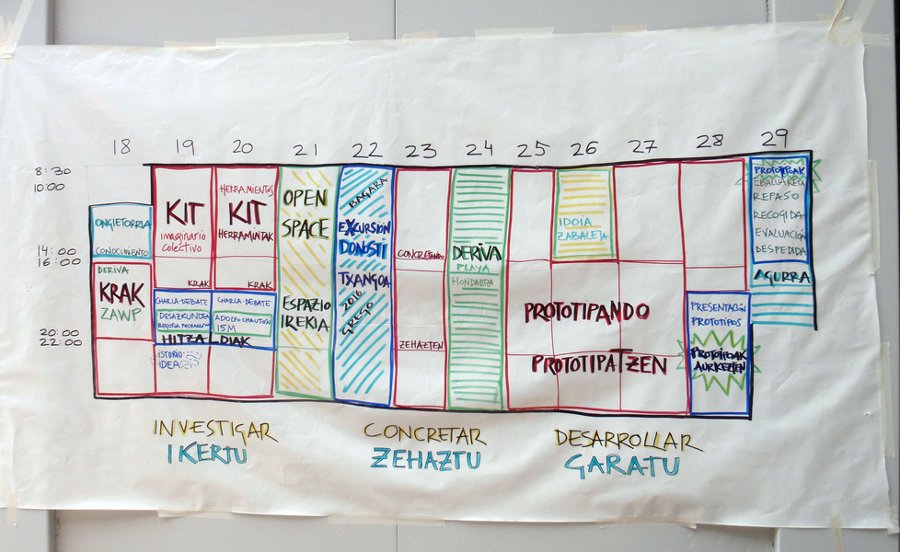 18 19 20 21 22 23 24 25 26 27 28 29
8:30
10:00
14:00
16:00
20:00
22:00
ONGIETORRIA
CONOCIMIENTO
DERIVA
KRAK
ZAWP
KIT
imaginario
colectivo
KRAK
HERRAMIENTAS
KIT
HERRAMINTAK
KRAK
CHARLA-DEBATE
DESAZKUNDEA
CHARLA-DEBATE
15M
HITZALDIAK
IDEA
OPEN
SPACE
ESPAZIO
IREKIA
BAGARA
EXCURSIÓN
DONOSTI
TXANGOA
2016
CONCRETANDO
ZEHAZTEN
DERIVA
PLAYA
HONDARTZA
IDOIA
ZABALETA
PROTOTIPANDO
PROTOTIPATZEN
PRESENTACIÓN
PROTOTIPOS
PROTOTIPOAK
AURKEZTEN
PROTOTIPOAK
EBALUAKETA
REPASO
RECOGIDA
EVALUACIÓN
DESPEDIDA
AGURRA
INVESTIGAR
IKERTU
CONCRETAR
ZEHAZTU
DESARROLLAR
GARATU